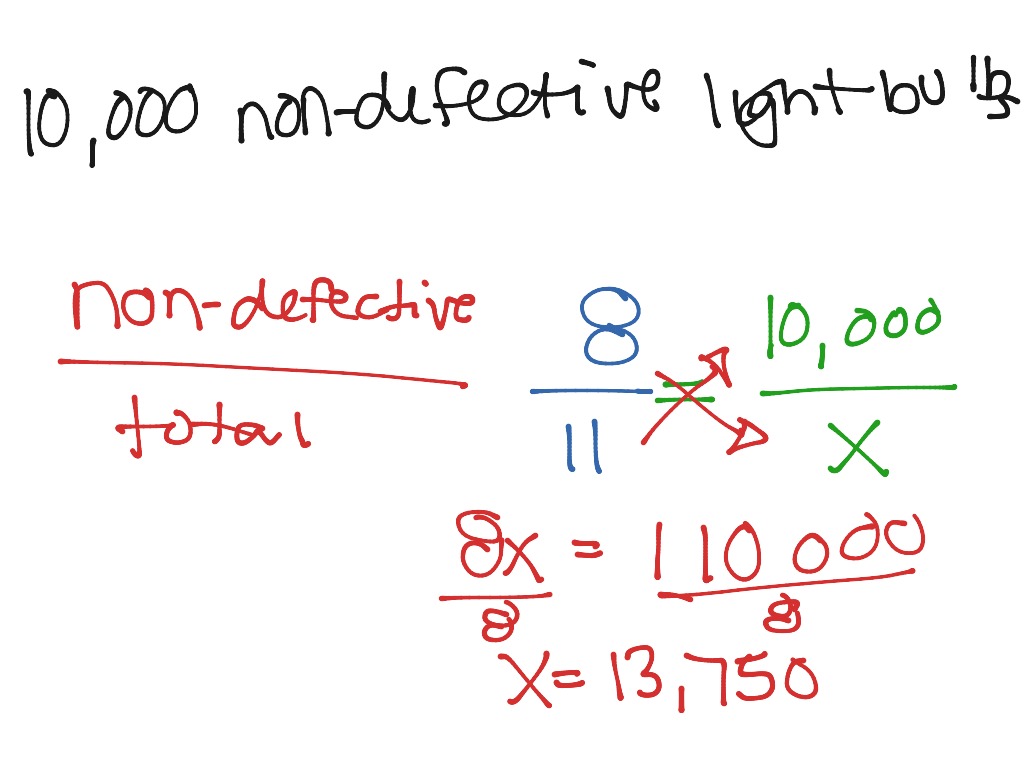 10,000 non-defective light bulbs
non-defective
total
8
11
=
10,000
x
8x = 110 000
8 8
x = 13,750